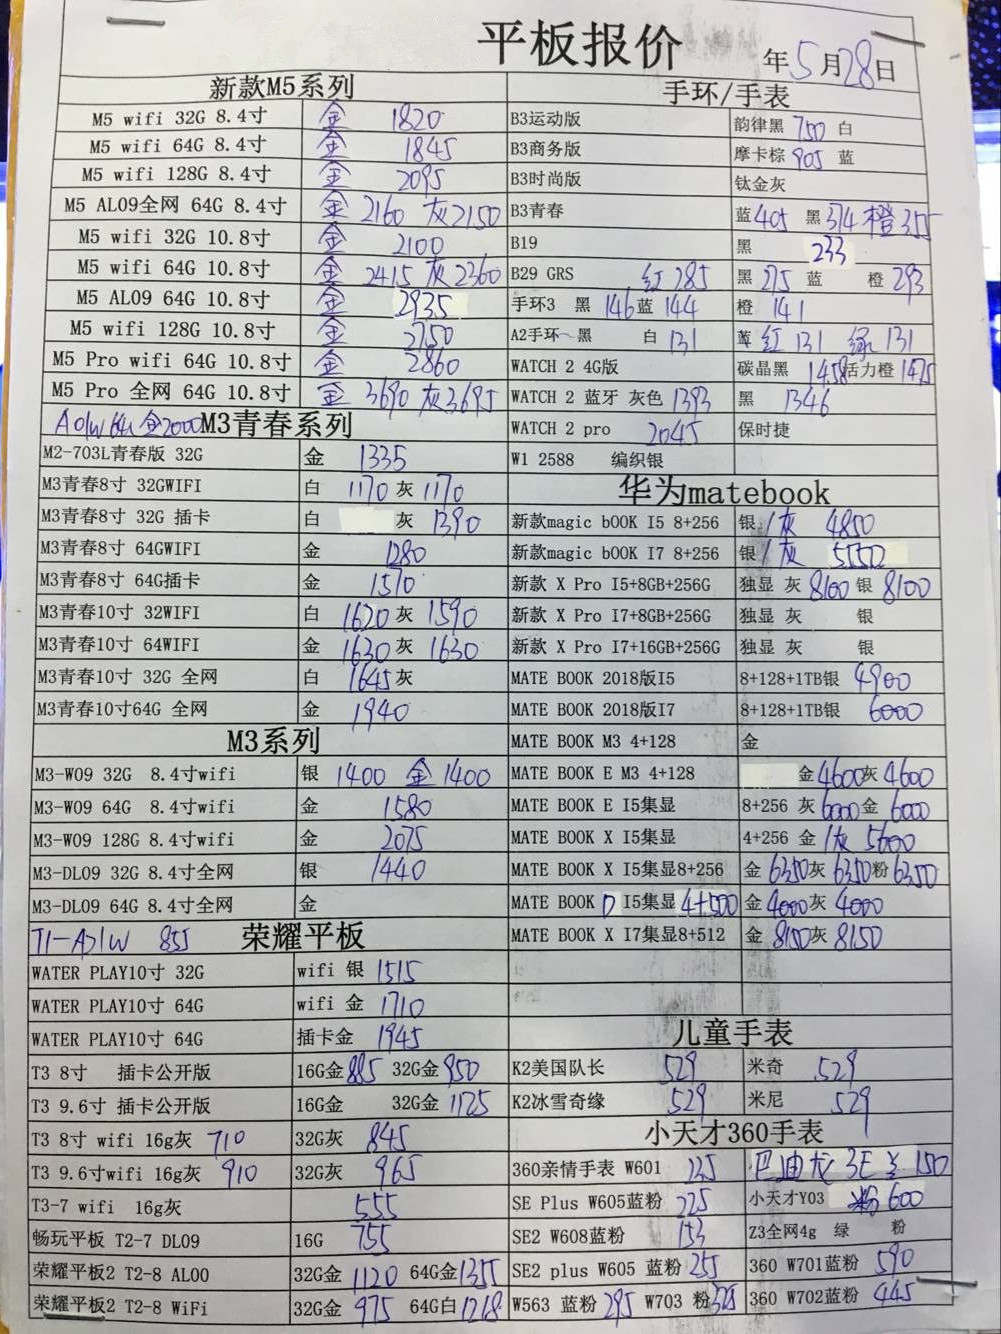 平板报价
年5月28日
新款M5系列
M5 wifi 32G 8.4寸 金 1820
M5 wifi 64G 8.4寸 金 1845
M5 wifi 128G 8.4寸 金 2095
M5 AL09全网 64G 8.4寸 金 2160 灰2150
M5 wifi 32G 10.8寸 金 2100
M5 wifi 64G 10.8寸 金 2415 灰2360
M5 AL09 64G 10.8寸 金 2935
M5 wifi 128G 10.8寸 金 2750
M5 Pro wifi 64G 10.8寸 金 2860
M5 Pro 全网 64G 10.8寸 金 3690 灰3695
A01W 64G 金2000 M3青春系列
M2-703L青春版 32G 金 1335
M3青春8寸 32GWIFI 白 1170 灰 1170
M3青春8寸 32G 插卡 白 灰 1390
M3青春8寸 64GWIFI 金 1280
M3青春8寸 64G插卡 金 1570
M3青春10寸 32WIFI 白 1620 灰 1590
M3青春10寸 64WIFI 金 1630 灰 1630
M3青春10寸 32G 全网 白 1645 灰
M3青春10寸64G 全网 金 1940
M3系列
M3-W09 32G 8.4寸wifi 银 1400 金 1400
M3-W09 64G 8.4寸wifi 金 1580
M3-W09 128G 8.4寸wifi 金 2075
M3-DL09 32G 8.4寸全网 银 1440
M3-DL09 64G 8.4寸全网 金
T1-A21W 855 荣耀平板
WATER PLAY10寸 32G wifi 银 1515
WATER PLAY10寸 64G wifi 金 1710
WATER PLAY10寸 64G 插卡金 1945
T3 8寸 插卡公开版 16G金 885 32G金 950
T3 9.6寸 插卡公开版 16G金 32G金 1125
T3 8寸 wifi 16g灰 710 32G灰 845
T3 9.6寸wifi 16g灰 910 32G灰 965
T3-7 wifi 16g灰 555
畅玩平板 T2-7 DL09 16G 755
荣耀平板2 T2-8 AL00 32G金 1120 64G金 1355
荣耀平板2 T2-8 WiFi 32G金 975 64G白 1218
手环/手表
B3运动版 韵律黑 750 白
B3商务版 摩卡棕 905 蓝
B3时尚版 钛金灰
B3青春 蓝 405 黑 374 橙 355
B19 黑 233
B29 GRS 红 285 黑 275 蓝 橙 293
手环3 黑 146 蓝 144 橙 141
A2手环 黑 白 131 蓝 红 131 绿 131
WATCH 2 4G版 碳晶黑 1458 活力橙 1475
WATCH 2 蓝牙 灰色 1393 黑 1346
WATCH 2 pro 2045 保时捷
W1 2588 编织银
华为matebook
新款magic bOOK I5 8+256 银/灰 4850
新款magic bOOK I7 8+256 银/灰 5550
新款 X Pro I5+8GB+256G 独显 灰 8100 银 8100
新款 X Pro I7+8GB+256G 独显 灰 银
新款 X Pro I7+16GB+256G 独显 灰 银
MATE BOOK 2018版I5 8+128+1TB银 4900
MATE BOOK 2018版I7 8+128+1TB银 6000
MATE BOOK M3 4+128 金
MATE BOOK E M3 4+128 金 4600 灰 4600
MATE BOOK E I5集显 8+256 灰 6000 金 6000
MATE BOOK X I5集显 4+256 金/灰 5600
MATE BOOK X I5集显8+256 金 6350 灰 6350 粉 6350
MATE BOOK D I5集显 4+500 金 4000 灰 4000
MATE BOOK X I7集显8+512 金 8150 灰 8150
儿童手表
K2美国队长 529 米奇 529
K2冰雪奇缘 529 米尼 529
小天才360手表
360亲情手表 W601 巴迪龙 3E 150
SE Plus W605蓝粉 225 小天才Y03 粉 600
SE2 W608蓝粉 153 Z3全网4g 绿 粉
SE2 plus W605 蓝粉 255 360 W701蓝粉 590
W563 蓝粉 295 W703 粉 360 W702蓝粉 445